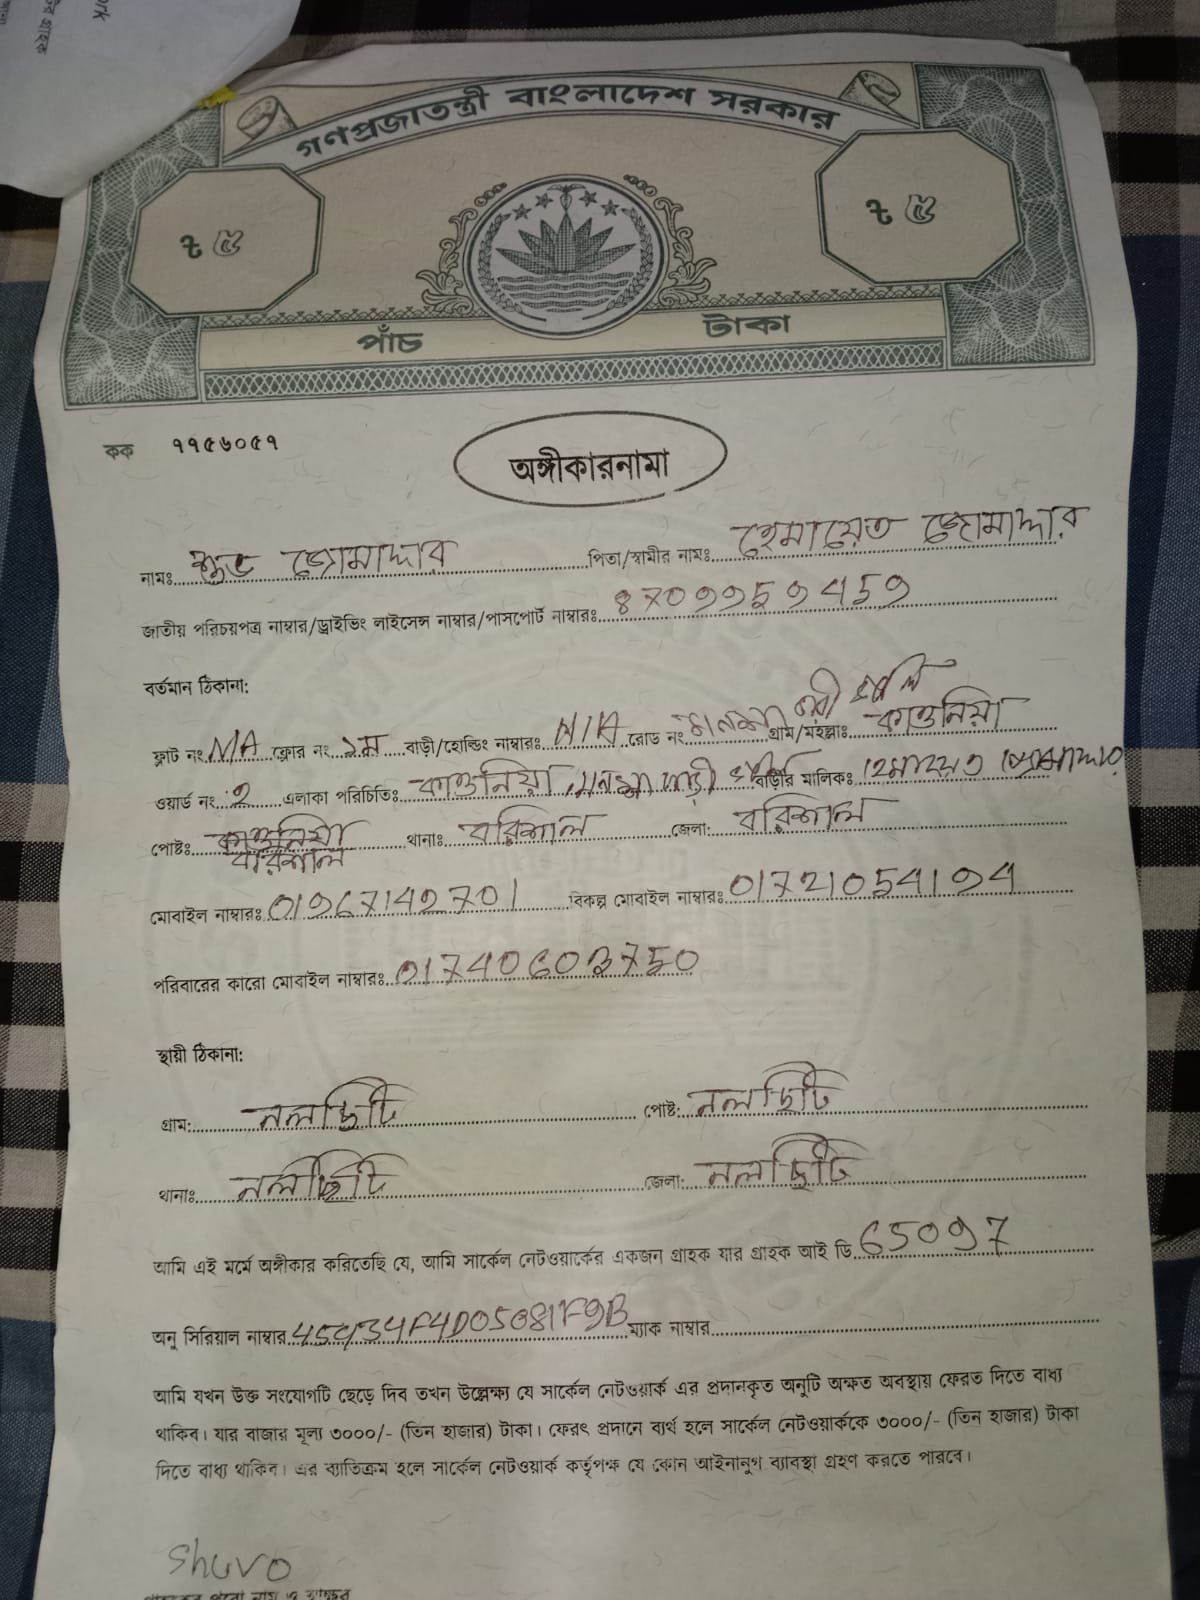 গণপ্রজাতন্ত্রী বাংলাদেশ সরকার
৳ ৫
৳ ৫
পাঁচ টাকা
কক ৭৭৫৬০৫৭
অঙ্গীকারনামা
নামঃ শুভ জোমাদ্দার পিতা/স্বামীর নামঃ হেমায়েত জোমাদ্দার
জাতীয় পরিচয়পত্র নাম্বার/ড্রাইভিং লাইসেন্স নাম্বার/পাসপোর্ট নাম্বারঃ
বর্তমান ঠিকানা:
ফ্লাট নং N/A ফ্লোর নং ১ম বাড়ী/হোল্ডিং নাম্বারঃ N/A রোড নং গ্রাম/মহল্লাঃ কাউনিয়া
ওয়ার্ড নং ২ এলাকা পরিচিতিঃ কাউনিয়া, মনসা বাড়ী বাড়ীর মালিকঃ হেমায়েত জোমাদ্দার
পোষ্টঃ কাউনিয়া বরিশাল থানাঃ বরিশাল জেলা: বরিশাল
মোবাইল নাম্বারঃ বিকল্প মোবাইল নাম্বারঃ
পরিবারের কারো মোবাইল নাম্বারঃ
স্থায়ী ঠিকানা:
গ্রাম: নলছিটি পোষ্ট: নলছিটি
থানাঃ নলছিটি জেলা: নলছিটি
আমি এই মর্মে অঙ্গীকার করিতেছি যে, আমি সার্কেল নেটওয়ার্কের একজন গ্রাহক যার গ্রাহক আই ডি
অনু সিরিয়াল নাম্বার ম্যাক নাম্বার
আমি যখন উক্ত সংযোগটি ছেড়ে দিব তখন উল্লেক্ষ্য যে সার্কেল নেটওয়ার্ক এর প্রদানকৃত অনুটি অক্ষত অবস্থায় ফেরত দিতে বাধ্য
থাকিব। যার বাজার মূল্য ৩০০০/- (তিন হাজার) টাকা। ফেরৎ প্রদানে ব্যর্থ হলে সার্কেল নেটওয়ার্ককে ৩০০০/- (তিন হাজার) টাকা
দিতে বাধ্য থাকিব। এর ব্যতিক্রম হলে সার্কেল নেটওয়ার্ক কর্তৃপক্ষ যে কোন আইনানুগ ব্যাবস্থা গ্রহণ করতে পারবে।
Shuvo